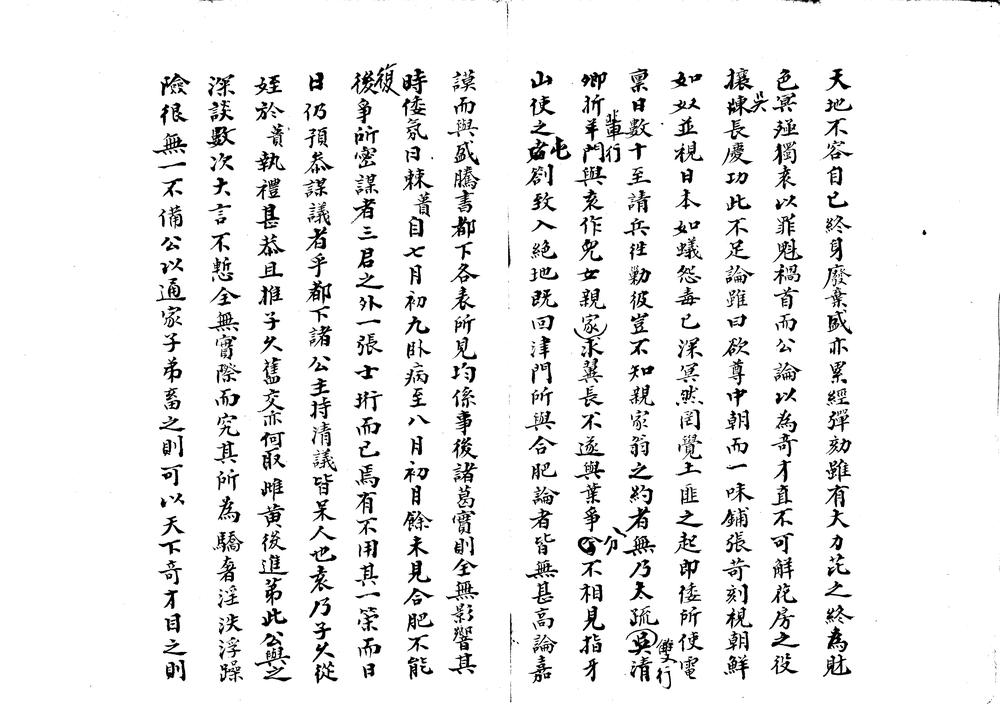 天地不容自已終身廢棄盛亦累經彈劾雖有大力芘之終為財
色冥殛獨袁以罪魁禍首而公論以為奇才直不可解花房之役
攘吳悚長慶功此不足論雖曰欲尊中朝而一味鋪張苛刻視朝鮮
如奴並視日本如蟻怨毒已深冥然罔覺土匪之起即倭所使電
稟日數十至請兵往勦彼豈不知親家翁之約者無乃太疏吳清雙行
卿折羊輩行門與袁作兒女親家求翼長不遂與葉爭分不相見指牙
山使之屯劄致入絕地既回津門所與合肥論者皆無甚高論嘉
謨而與盛騰書都下各表所見均係事後諸葛實則全無影響其
時倭氛日棘蕢自七月初九卧病至八月初月餘未見合肥不能
復後爭所密謀者三君之外一張士珩而已焉有不用其一策而日
日仍預恭謀議者乎都下諸公主持清議皆呆人也袁乃子久從
姪於蕢執禮甚恭且推子久舊交亦何取雌黄後進第此公與之
深談數次大言不慙全無實際而究其所為驕奢淫泆浮躁
險很無一不備公以通家子弟畜之則可以天下奇才目之則